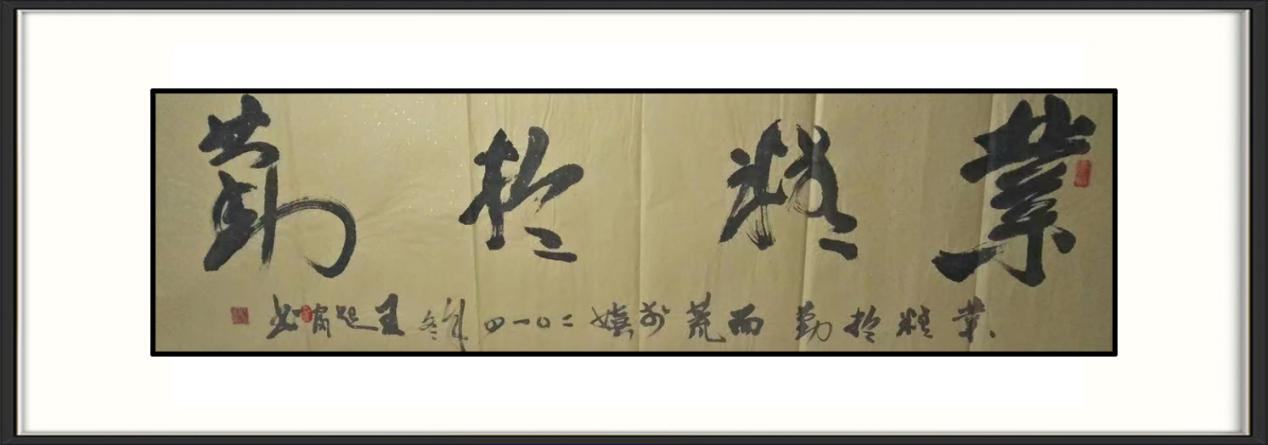 業精於勤
業精於勤而荒於嬉二〇一四年冬王超书